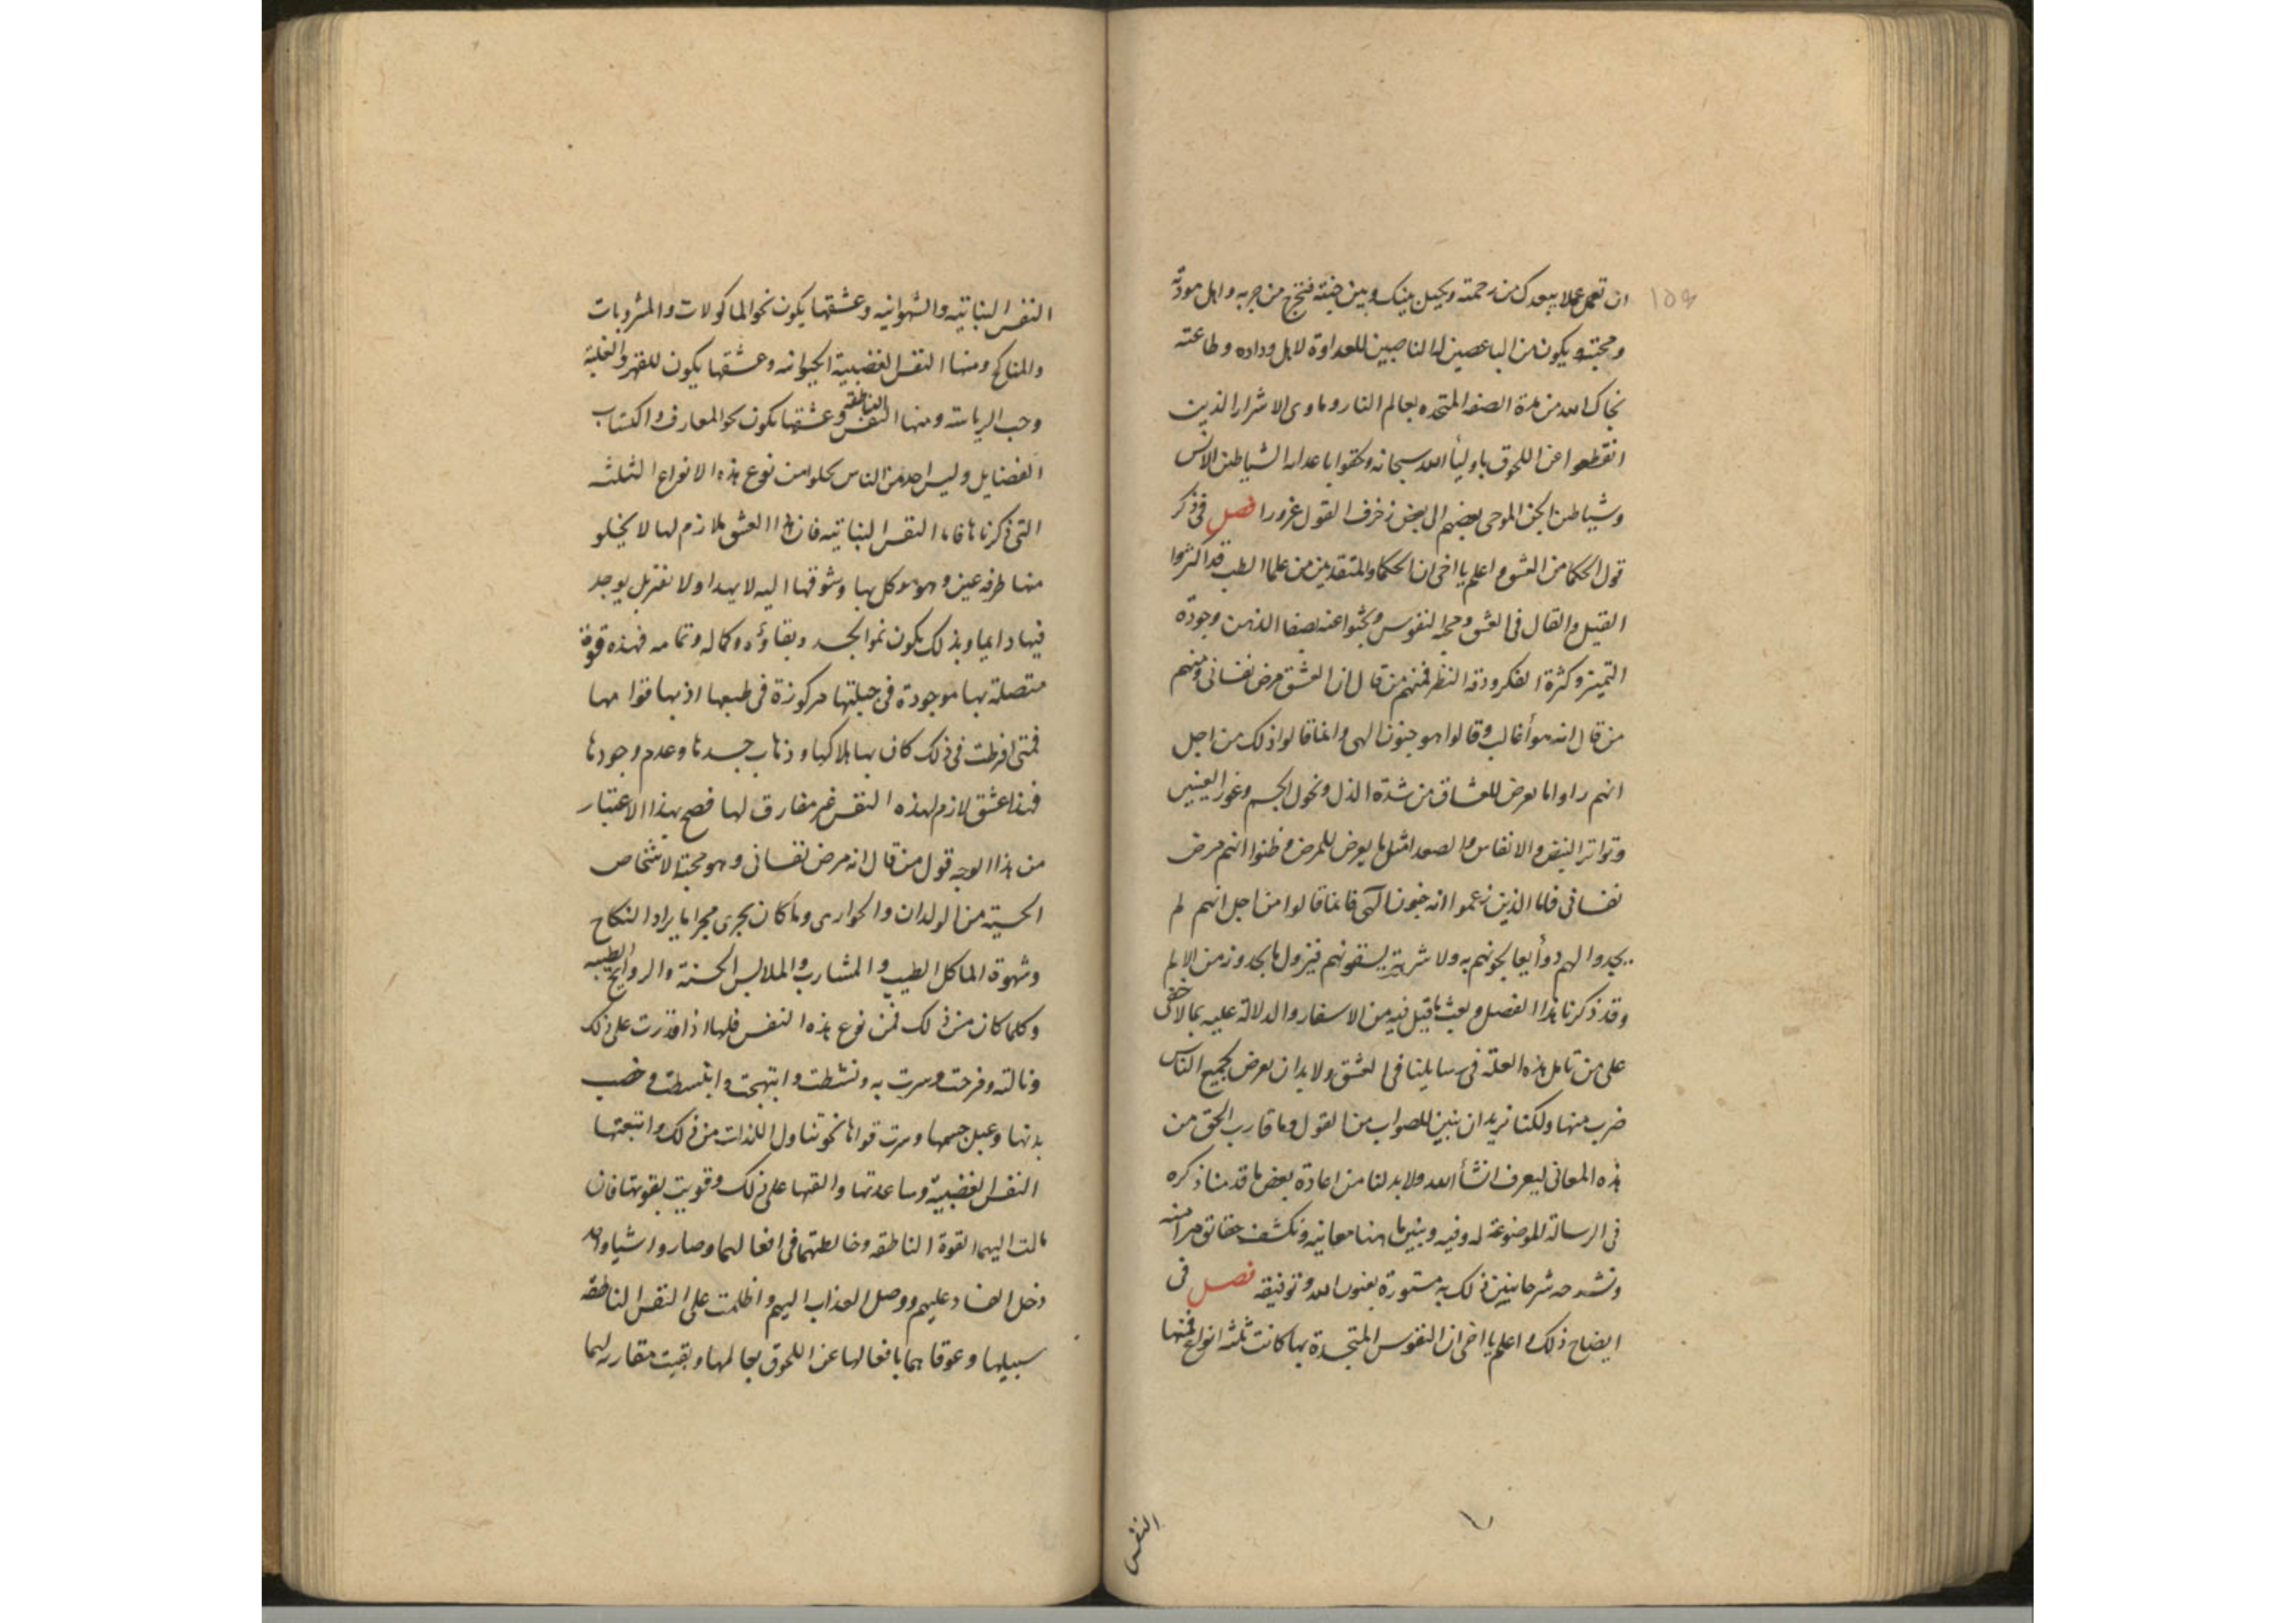 ان تعمل عملا يبعدك من رحمته ويحيل بينك وبين جنته فتخرج من حزبه واهل مودته
ومحبته ويكون من الباغضين له الناصبين للعداوة لاهل وداده وطاعته
نجاك الله من هذة الصفه المتحده بعالم النار وماوى الاشرار الذين
انقطعوا عن اللحوق باوليأ الله سبحانه ولحقوا باعدائه الشياطين الانس
وشياطين الجن الموحى بعضهم الى بعض زخرف القول غرورا فصل فى ذكر
قول الحكما من العشق اعلم يا اخى ان الحكما والمتقدمين من علما الطب قد اكثروا
القيل والقال فى العشق ومحبة النفوس وبحثوا عنه بصفا الذهن وجودة
التميز وكثرة الفكر ودقة النظر فمنهم من قال ان العشق مرض نفسانى ومنهم
من قال انه هوأ غالب وقالوا هو جنون الهى وانما قالوا ذلك من اجل
انهم راوا ما يعرض للعشاق من شدة الذل ونحول الجسم وغور العينين
وتواتر النبض والانفاس والصعدا مثل ما يعرض للمرض فظنوا انهم مرض
نفسانى فاما الذين زعموا انه جنون الهى فانما قالوا من اجل انهم لم
يجدوا لهم دوأ يعالجونهم به ولا شربة يسقونهم فيزول ما يجدونه من الالم
وقد ذكرنا هذا الفصل وبعث ما قيل فيه من الاسفار والدلالة عليه بما لا خفى
على من تامل هذه العلة فى رسايلنا فى العشق ولا بد ان يعرض لجميع الناس
ضرب منها ولكنا نريد ان نبين للصواب من القول وما قارب الحق من
هذه المعانى ليعرف انشأ الله ولا بد لنا من اعادة بعض ما قدمنا ذكره
فى الرسالة الموضوعة له وفيه ونبين ها هنا معانيه ونكشف حقائق مرامنه
ونشرحه شرحا نبين ذلك به مستورة بعون الله وتوفيقه فصل فى
ايضاح ذلك اعلم يا اخى ان النفوس المتجسدة بها كانت ثلثه انواع فمنها
النفس
١٥٤
النفس النباتيه والشهوانيه وعشقها يكون نحو الماكولات والمشروبات
والمناكح ومنها النفس الغضبية الحيوانه وعشقها يكون للقهر والغلبة
وحب الرياسة ومنها النفس الناطقه وعشقها يكون نحو المعارف واكتساب
الفضايل وليس احد من الناس يخلوا من نوع هذه الانواع الثلثه
التى ذكرناها فاما النفس النباتيه فان هذا العشق ملازم لها لا يخلو
منها طرفه عين وهو موكل بها وشوقها اليه لا يهدا ولا يفتر بل يوجد
فيها دايما وبذلك يكون نمو الجسد وبقاؤه وكماله وتمامه فهذه قوة
متصلة بها موجودة فى جبلتها مركوزة فى طبعها اذ بها قوامها
فمتى افرطت فى ذلك كان بها هلاكها وذهاب جسدها وعدم وجودها
فهذا عشق لازم لهذه النفس غير مفارق لها فصح بهذا الاعتبار
من هذا الوجه قول من قال انه مرض نفسانى وهو محبة الاشخاص
الحسية من الولدان والجوارى وما كان يجرى مجراها يراد النكاح
وشهوة الماكل الطيب والمشارب والملابس الحسنة والروايح الطيبه
وكلما كان من ذلك فمن نوع هذه النفس فلها اذا قدرت على ذلك
ونالته وفرحت وسرت به ونشطت وابتهجت وانبسطت وخصب
بدنها وعبل جسمها وسرت قواها نحو تناول اللذات من ذلك واتبعتها
النفس الغضبية وساعدتها والقها على ذلك وقويت بقوتها فان
مالت اليهما القوة الناطقه وخالطتهما فى افعالهما وصاروا شيا واحد
دخل الفساد عليهم ووصل العذاب اليهم واظلمت على النفس الناطقه
سبيلها وعوقاهما بافعالها عن اللحوق بعالمها وبقيت مقارنه لهما